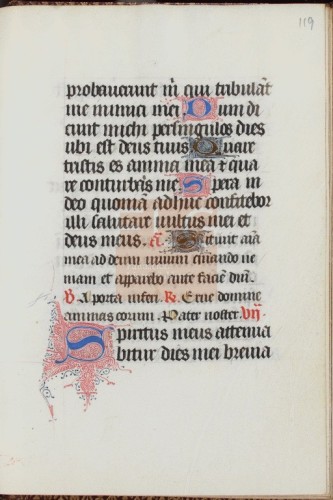 119
probaverunt m̄ qui tribulāt
me inimici mei Dum di
cunt michi per singulos dies
ubi est deus tuus Quare
tristis es anima mea et qua
re conturbas me Spera in
deo quoniā adhuc confitebor
illi salutare vultus mei et
deus meus. ā. Sitivit aīa
mea ad deum vivum quando ve
niam et apparebo ante faciē dn̄i.
V A porta inferi. R. Erue domine
animas eorum. Pater noster. vij
Spiritus meus attenua
bitur dies mei brevia